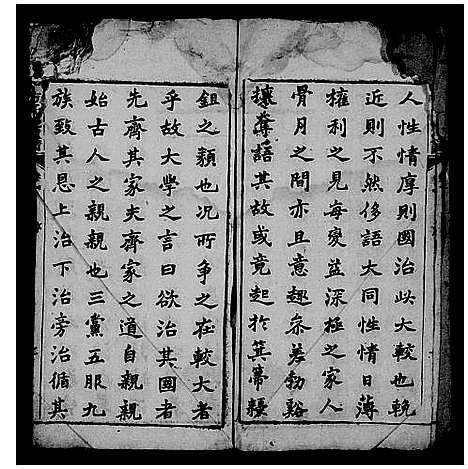 人性情厚則國治此大較也輓
近則不然侈語大同性情日薄
權利之見每變益深極之家人
骨月之間亦且意趣参差勃谿
攘奪語其故或竟起於箕帚耰
鉏之類也况所争之在較大者
乎故大學之言曰欲治其國者
先齊其家夫齊家之道自親親
始古人之親親也三黨五服九
族致其恩上治下治旁治循其